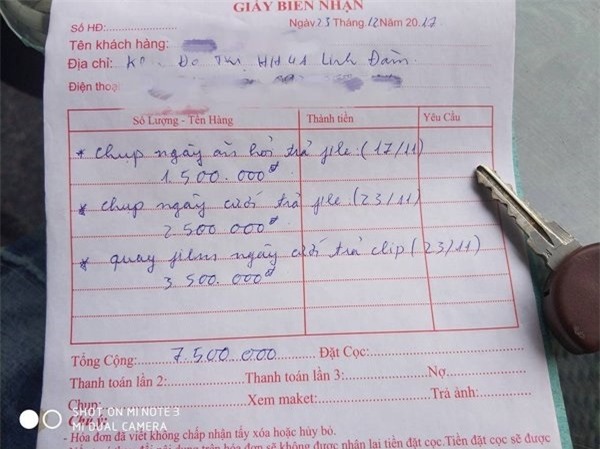 GIẤY BIÊN NHẬN
Số HĐ: Ngày 23 Tháng 12 Năm 2017
Tên khách hàng:
Địa chỉ: Đô Thị HH4A Linh Đàm.
Điện thoại
Số Lượng - Tên Hàng Thành tiền Yêu Cầu
* chụp ngày ăn hỏi trả file (17/11)
1.500.000đ
* chụp ngày cưới trả file (23/11)
2.500.000đ
* quay film ngày cưới trả clip (23/11)
3.500.000đ
Tổng Cộng: 7.500.000 Đặt Cọc:
Thanh toán lần 2: Thanh toán lần 3: Nợ
Chụp: Xem maket: Trả ảnh:
Chú ý:
SHOT ON MI NOTE 3
MI DUAL CAMERA
- Hóa đơn đã viết không chấp nhận tẩy xóa hoặc hủy bỏ.
hóa đơn sẽ không được nhận lại tiền đặt cọc.Tiền đặt cọc sẽ được